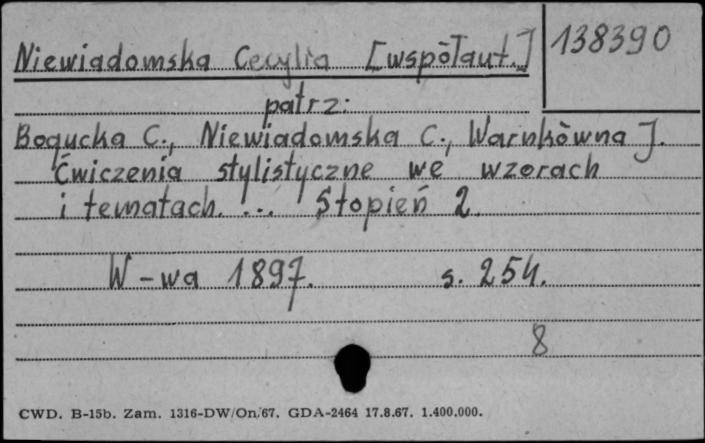 Niewiadomska Cecylia [współaut.] 138390
patrz:
Bogucka C., Niewiadomska C., Warnkówna J.
Ćwiczenia stylistyczne we wzorach
i tematach. ... Stopień 2.
W-wa 1897. s. 254.
8
CWD. B-15b. Zam. 1316-DW/On/67. GDA-2464 17.8.67. 1.400.000.